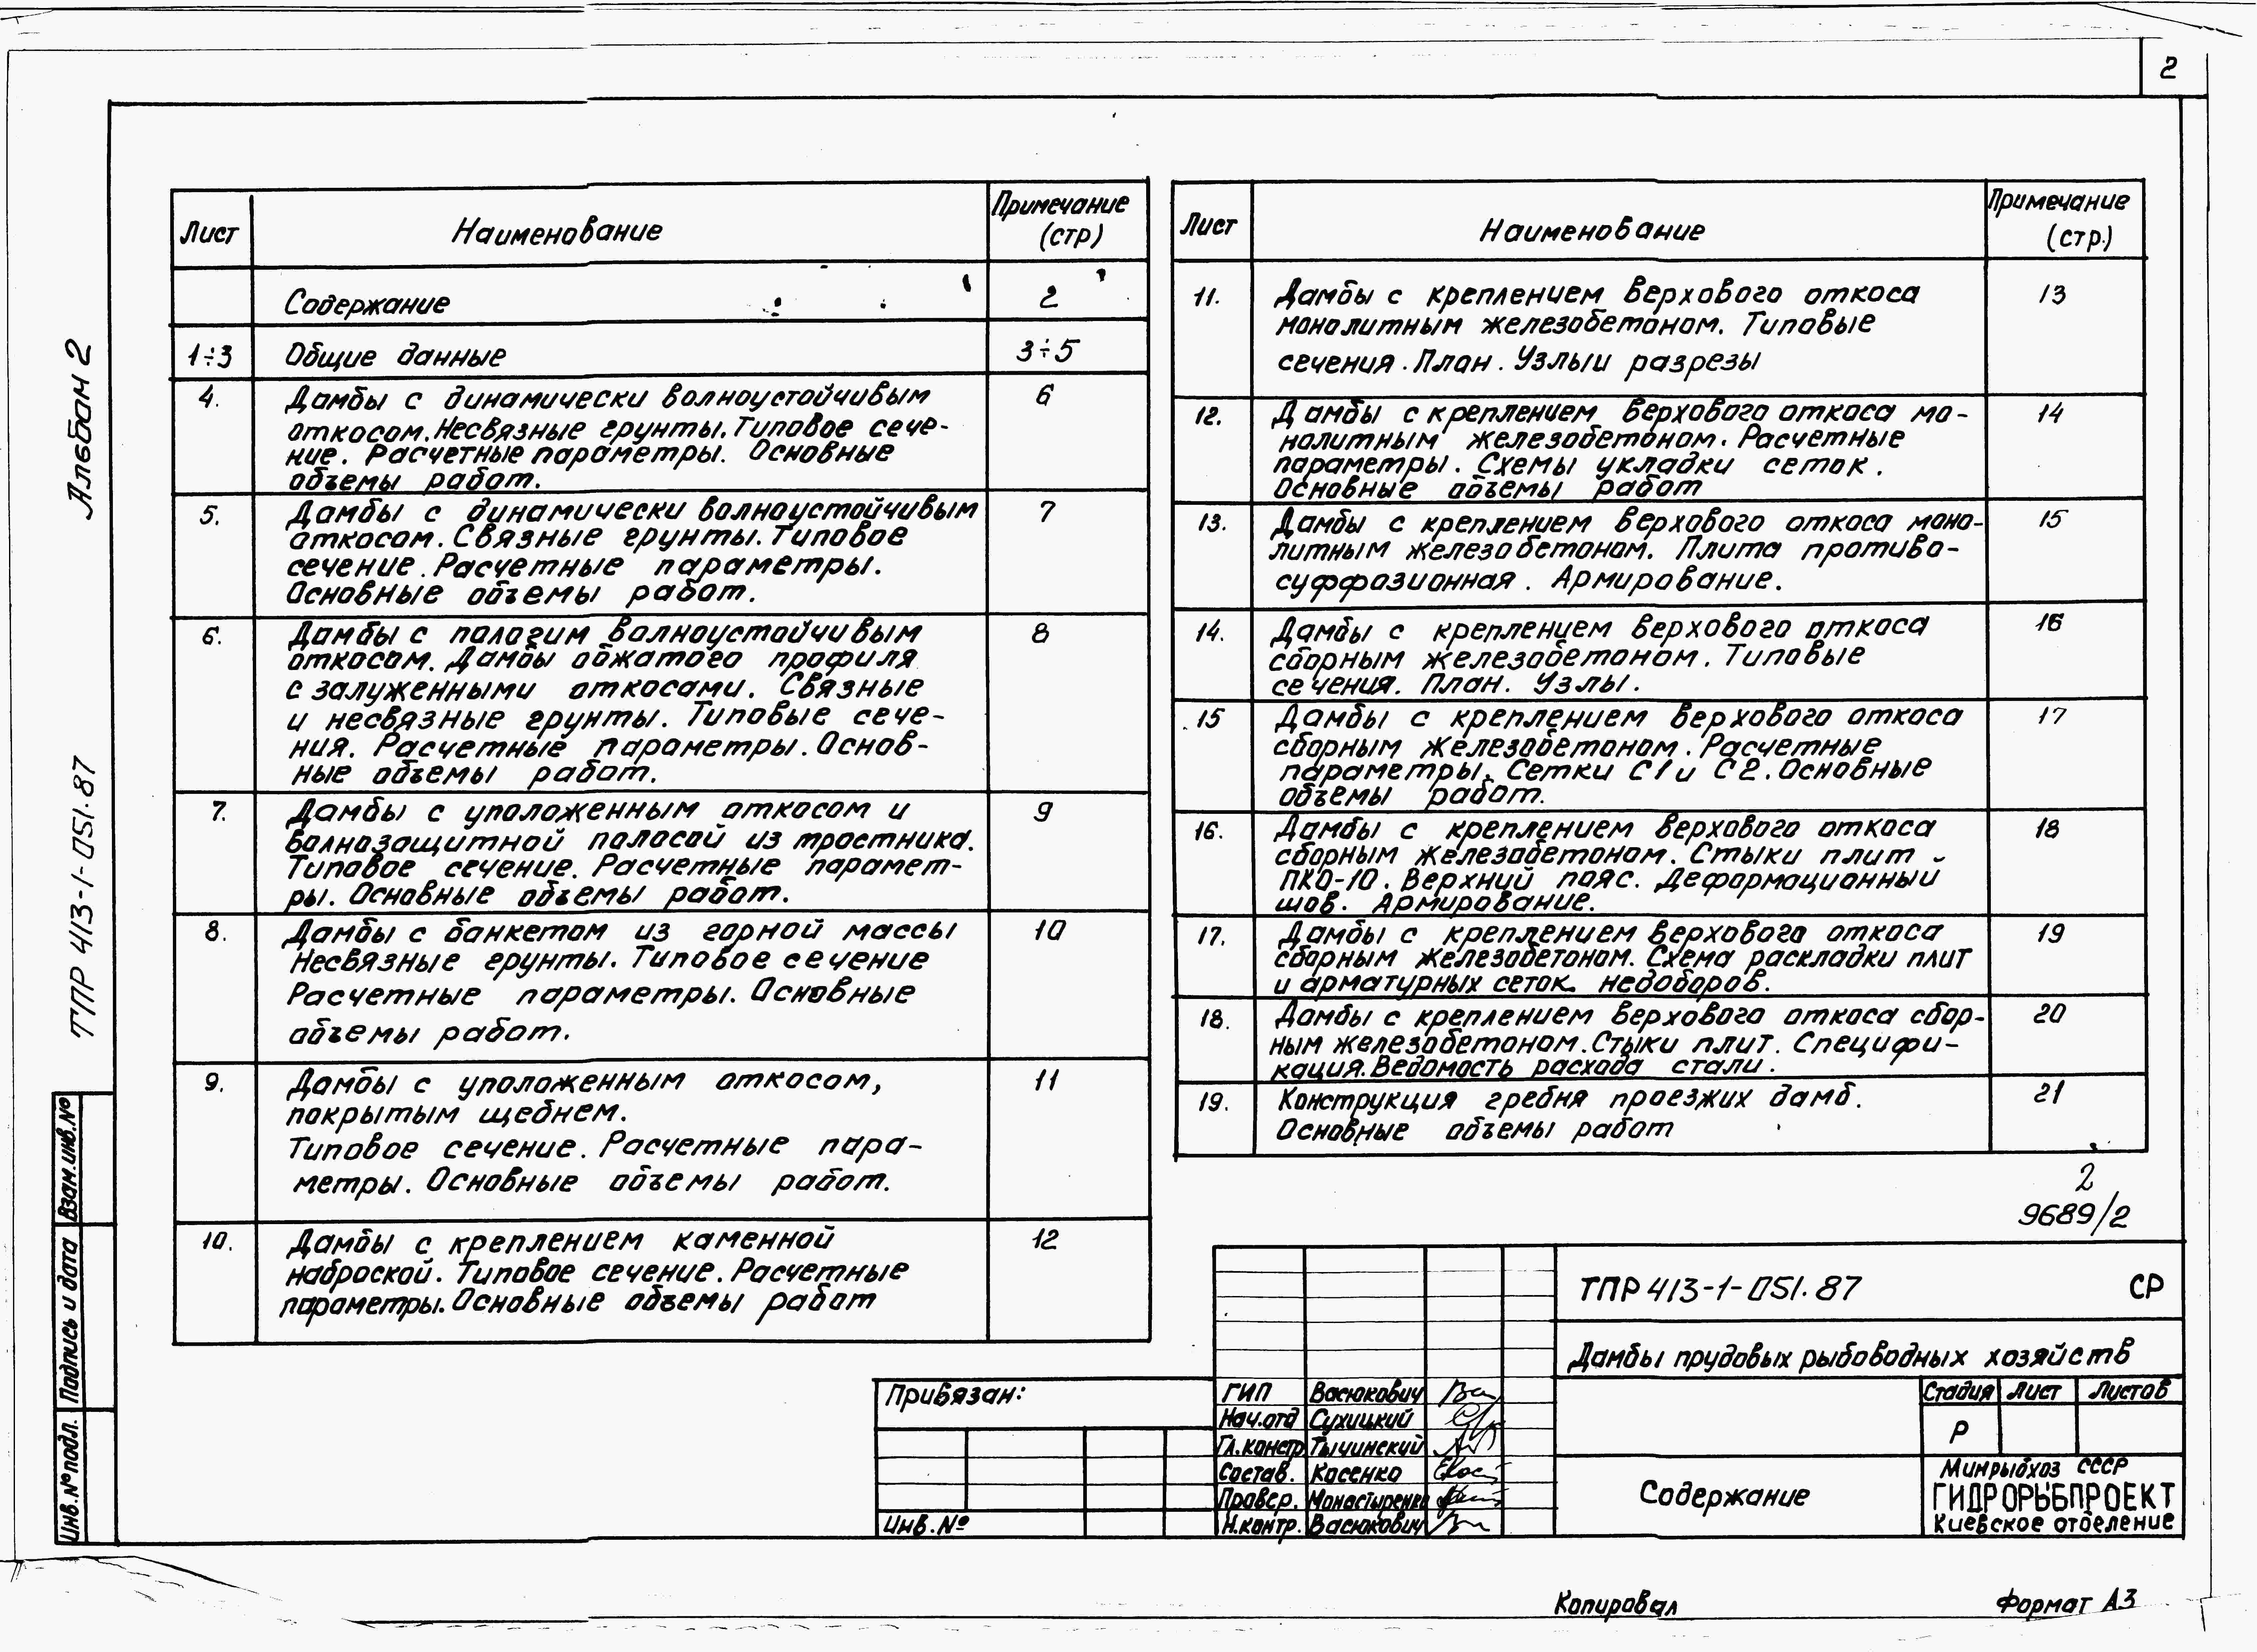 2
Альбом 2
ТПР 413-1-051.87
Взам.инв.№
Подпись и дата
Инв.№подл.
Лист Наименование Примечание
(стр)
Содержание 2
1÷3 Общие данные 3÷5
4. Дамбы с динамически волноустойчивым 6
откосом. Несвязные грунты. Типовое сече-
ние. Расчетные параметры. Основные
объемы работ.
5. Дамбы с динамически волноустойчивым 7
откосом. Связные грунты. Типовое
сечение. Расчетные параметры.
Основные объемы работ.
6. Дамбы с пологим волноустойчивым 8
откосом. Дамбы обжатого профиля
с залуженными откосами. Связные
и несвязные грунты. Типовые сече-
ния. Расчетные параметры. Основ-
ные объемы работ.
7. Дамбы с уположенным откосом и 9
волнозащитной полосой из тростника.
Типовое сечение. Расчетные парамет-
ры. Основные объемы работ.
8. Дамбы с банкетом из горной массы 10
Несвязные грунты. Типовое сечение
Расчетные параметры. Основные
объемы работ.
9. Дамбы с уположенным откосом, 11
покрытым щебнем.
Типовое сечение. Расчетные пара-
метры. Основные объемы работ.
10. Дамбы с креплением каменной 12
наброской. Типовое сечение. Расчетные
параметры. Основные объемы работ
Лист Наименование Примечание
(стр.)
11. Дамбы с креплением верхового откоса 13
монолитным железобетоном. Типовые
сечения. План. Узлы и разрезы
12. Дамбы с креплением верхового откоса мо- 14
нолитным железобетоном. Расчетные
параметры. Схемы укладки сеток.
Основные объемы работ
13. Дамбы с креплением верхового откоса моно- 15
литным железобетоном. Плита противо-
суффозионная. Армирование.
14. Дамбы с креплением верхового откоса 16
сборным железобетоном. Типовые
сечения. План. Узлы.
15 Дамбы с креплением верхового откоса 17
сборным железобетоном. Расчетные
параметры. Сетки С1 и С2. Основные
объемы работ.
16. Дамбы с креплением верхового откоса 18
сборным железобетоном. Стыки плит
ПКО-10. Верхний пояс. Деформационный
шов. Армирование.
17. Дамбы с креплением верхового откоса 19
сборным железобетоном. Схема раскладки плит
и арматурных сеток недоборов.
18. Дамбы с креплением верхового откоса сбор- 20
ным железобетоном. Стыки плит. Специфи-
кация. Ведомость расхода стали.
19. Конструкция гребня проезжих дамб. 21
Основные объемы работ
2
9689/2
ТПР 413-1-051.87 СР
Дамбы прудовых рыбоводных хозяйств
Привязан:
Инв.№
ГИП Васюкович
Нач.отд Сухицкий
Гл.констр Тычинский
Состав. Косенко
Провер. Монастыренко
Н.контр. Васюкович
Стадия Лист Листов
Р
Содержание
Минрыбхоз СССР
ГИДРОРЫБПРОЕКТ
Киевское отделение
Копировал Формат А3